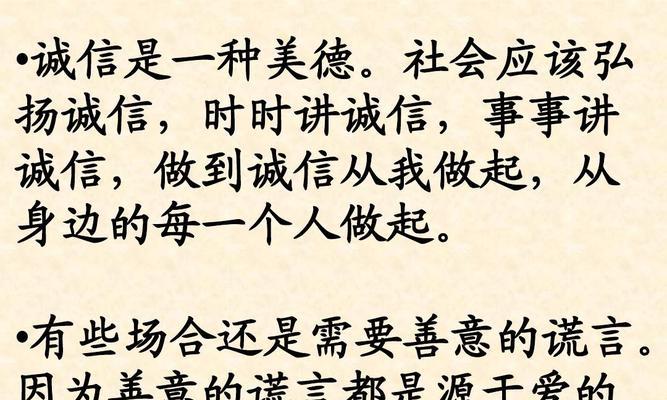 •诚信是一种美德。社会应该弘
扬诚信，时时讲诚信，事事讲
诚信，做到诚信从我做起，从
身边的每一个人做起。
•有些场合还是需要善意的谎言。
因为善意的谎言都是源于爱的